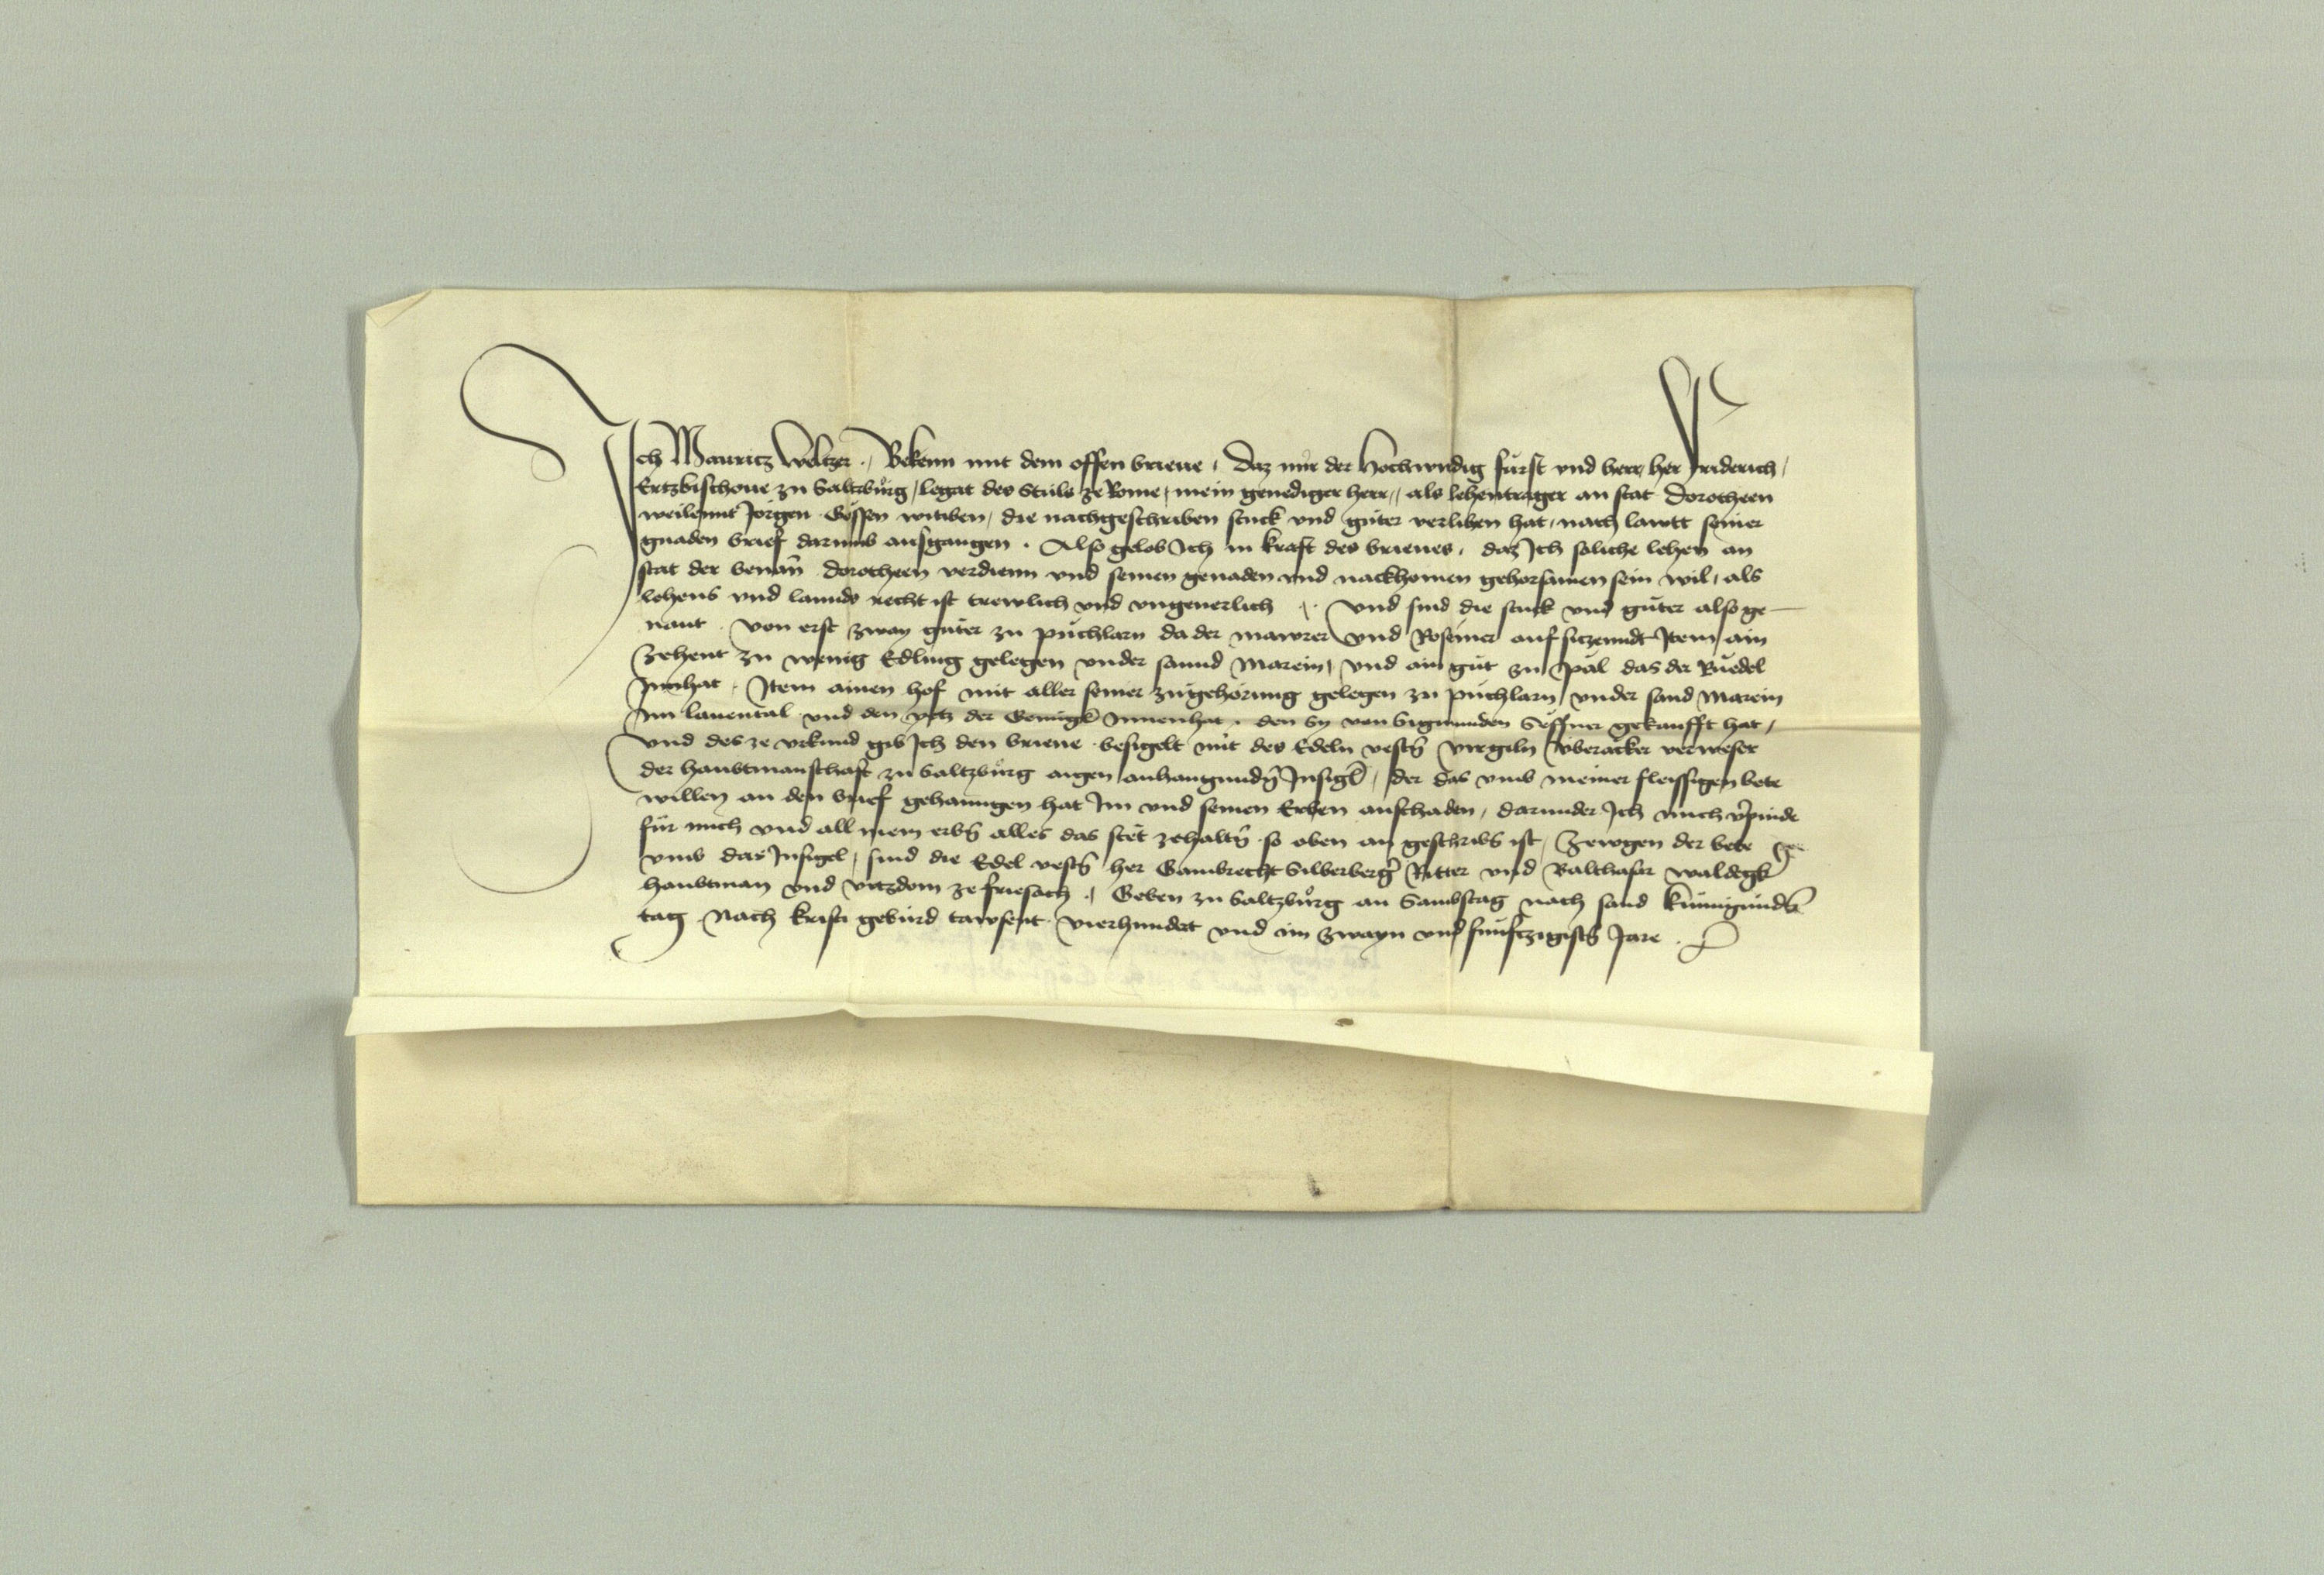 Ich Mauritz Weltzer . Bekenn mit dem offen brieue , Daz mir der Hochwirdig fürst vnd herr her Friderich ,
Ertzbischoue zu Saltzburg , legat des Stuls ze Rome , mein genediger herr , als lehentrager an stat Dorotheen
weilennt Jorgen Gössen witiben , die nachgeschriben stuck vnd güter verlihen hat , nach lawtt seiner
gnaden brief darumb ausgangen . Also gelob Ich in kraft des brieues , daz Ich soliche lehen an
stat der benan̄ Dorotheen verdienn vnd seinen genaden vnd nackhomen gehorsamen sein wil , als
lehens vnd lannds recht ist trewlich vnd vngeuerlich . Vnd sind die stuck vnd güter also ge
nant . Von erst zway güter zu püchlarn da der mawrer vnd Roseiner auf sitzenndt Item ain
zehent zu wenig Edling gelegen vnder sannd Marein , vnd ain gut zu Pal das der Ruedel
Innhat . Item ainen hof mit aller seiner zugehörung gelegen zu püchlarn vnder sand Marein
Im lauental vnd den der Innenhat . den Sy von Sigmunden Seffner gekaufft hat ,
Vnd des ze vrkund gib Ich den brieue besigelt mit des Edeln vestn̄ Virgiln Vberacker verweser
der haubtmanschaft zu Saltzburg aigen anhangundn̄ Insigl , der das vmb meiner fleissigen bete
willen an den brief gehanngen hat Im vnd seinen Erben anschaden , darunder Ich mich v̄pinde
für mich vnd all mein erbn̄ alles das stet zehaltn̄ so oben an geschribn̄ ist , Zewgen der bete
vmb das Insigel , sind die Edel vestn̄ her Gambrecht Silberberḡ Ritter vnd Balthasar Waldegk̄
haubtman vnd vitzdom ze friesach . Geben zu Saltzburg an Sambstag nach sand künigundn̄
tag . Nach kristi gebürd tawsent vierhundert vnd im zwayn vnd fünftzigistn̄ Jare .